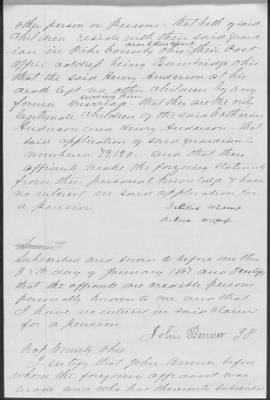 other person or persons - that both of said
Children reside with their said guard
ian in Pike County Ohio, their Post
office address being Bainbridge Ohio
that the said Henry Anderson at his
death left no other Children by any
surviving him
former marriage - that they are the only
legitimate Children of the said Catharine
Anderson and Henry Anderson - that
said application of said guardian is
numbered 79,190. and that these
affiants make the foregoing statements
from their personal knowledge & have
no interest in said application for
a pension
Subscribed and sworn to before me this
day of January 1867 and I certify
that the affiants are credible persons
personally known to me and that
I have no interest in said Claim
for a pension
John Benner
County Ohio
I certify that John Benner before
whom the foregoing affidavit was
made and who has thereunto subscribed